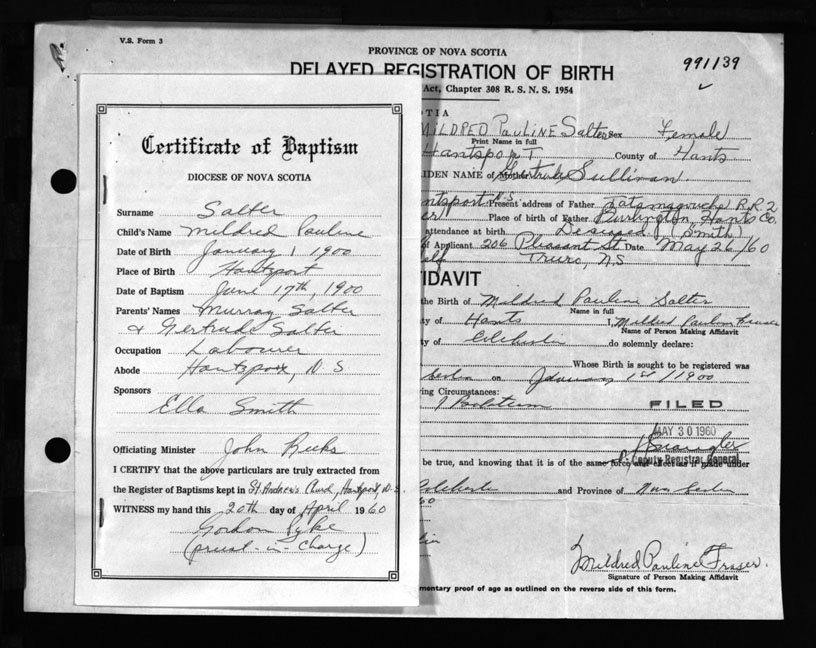 V.S. Form 3
PROVINCE OF NOVA SCOTIA
DELAYED REGISTRATION OF BIRTH
991139
Act, Chapter 308 R. S. N. S. 1954
OTIA
MILDRED PAULINE Salter Sex Female
Print Name in full
Hantsport County of Hants
IDEN NAME of Mother Gertrude Sulliman
ntsport N.S. Present address of Father Tatamagouche R.R.2
er Place of birth of Father Hants Co.
attendance at birth Deseased (Smith)
of Applicant 206 Pleasant St. Date May 26/60
self Truro, N.S
FIDAVIT
the Birth of Mildred Pauline Salter
Name in full
ty of Hants I, Mildred Pauline Fraser
Name of Person Making Affidavit
ty of Colchester do solemnly declare:
Whose Birth is sought to be registered was
on January 1st/1900
ing Circumstances:
FILED
MAY 30 1960
Deputy Registrar General
be true, and knowing that it is of the same force and effect as if made under
Colchester and Province of Nova Scotia
60
Mildred Pauline Fraser.
Signature of Person Making Affidavit
mentary proof of age as outlined on the reverse side of this form.
Certificate of Baptism
DIOCESE OF NOVA SCOTIA
Surname Salter
Child's Name Mildred Pauline
Date of Birth January 1 1900
Place of Birth Hantsport
Date of Baptism June 17th, 1900
Parents' Names Murray Salter
& Gertrude Salter
Occupation Labourer
Abode Hantsport, N S
Sponsors
Ella Smith
Officiating Minister John Reeks
I CERTIFY that the above particulars are truly extracted from
the Register of Baptisms kept in St. Andrew's Church, Hantsport, N.S.
WITNESS my hand this 20th day of April 1960
Gordon Pyke
(priest-in-charge)